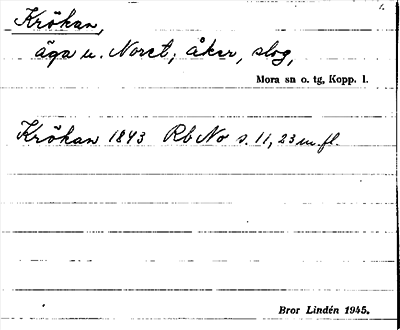 Krökan,
äga u. Noret; åker, slog,
Mora sn o. tg, Kopp. l.
Krökan 1843 Rb No s. 11, 23 m. fl.
Bror Lindén 1945.